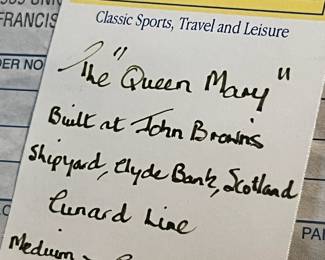 FRANCIS
Classic Sports, Travel and Leisure
DER NO
"The Queen Mary"
Built at John Brown's
Shipyard, Clyde Bank, Scotland
Cunard Line
Medium
PAI